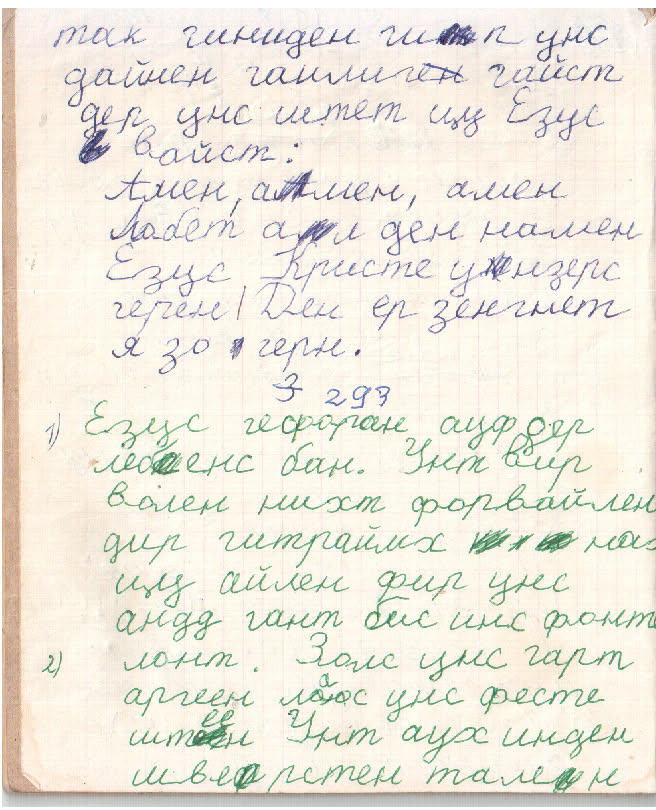 так гиниден гип унс
даинен ганлиген гайст
дер унс штет цу Езус
вайст:
Амен, амен, амен
Лобет ал ден намен
Езус Кристе унзерс
герен/ Ден ер зенгнет
я зо герн.
3 293
1) Езус гефоран ауф дер
лебенс бан. Унт вир
волен нихт форвайлен
дир гитраймх нах
цу айлен фир унс
андд гант бис инс фонте
2) лонт. Золс унс гарт
аргеен лаос унс фесте
штеен Унт аух инден
шверстен тален